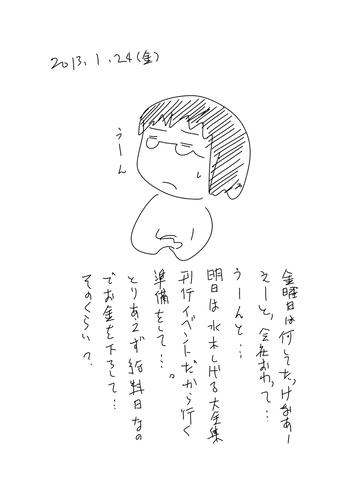 2013.1.24(金)
うーん
金曜日は何してたっけなあー
えーと、会社おわって…
うーんと…
明日は水木しげる大全集
刊行イベントだから行く
準備をして…。
とりあえず給料日なの
でお金を下ろして…
そのくらい?